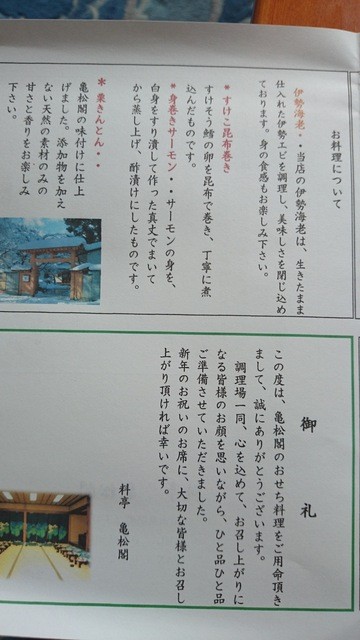 お料理について
伊勢海老・・当店の伊勢海老は、生きたまま
仕入れた伊勢エビを調理し、美味しさを閉じ込め
ております。身の食感もお楽しみ下さい。
＊すけこ昆布巻き
すけそう鱈の卵を昆布で巻き、丁寧に煮
込んだものです。
＊身巻きサーモン・・サーモンの身を、
白身をすり潰して作った真丈でまいて
から蒸し上げ、酢漬けにしたものです。
＊栗きんとん・・
亀松閣の味付けに仕上
げました。添加物を加え
ない天然の素材のみの
甘さと香りをお楽しみ
下さい。
御礼
この度は、亀松閣のおせち料理をご用命頂き
まして、誠にありがとうございます。
調理場一同、心を込めて、お召し上がりに
なる皆様のお顔を思いながら、ひと品ひと品
ご準備させていただきました。
新年のお祝いのお席に、大切な皆様とお召し
上がり頂ければ幸いです。
料亭 亀松閣